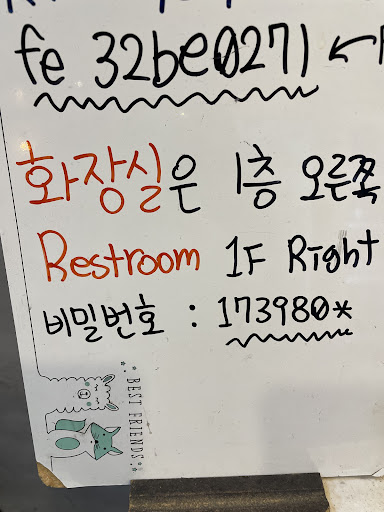 fe 32be0271
화장실은 1층 오른쪽
Restroom 1F Right
비밀번호 : 173980*
BEST FRIENDS